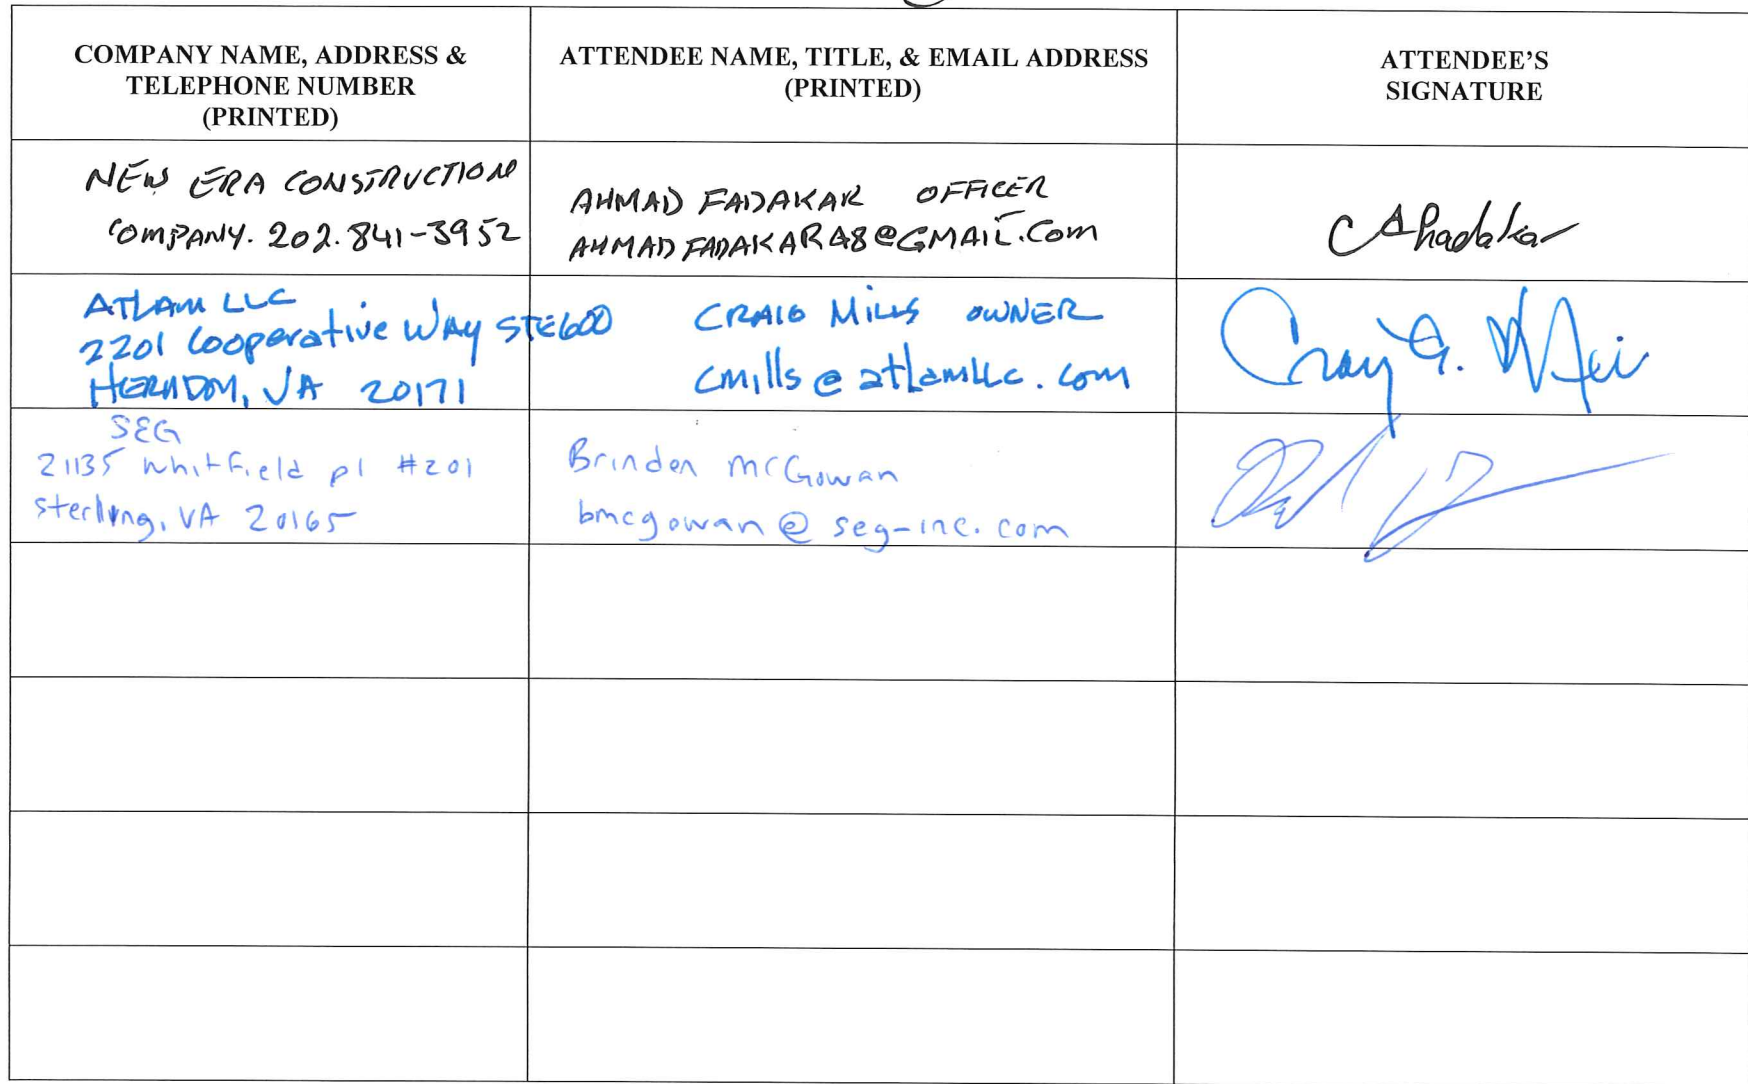 COMPANY NAME, ADDRESS &
TELEPHONE NUMBER
(PRINTED)
ATTENDEE NAME, TITLE, & EMAIL ADDRESS
(PRINTED)
ATTENDEE'S
SIGNATURE
NEW ERA CONSTRUCTION
COMPANY. 202.841-3952
AHMAD FADAKAR OFFICER
AHMADFADAKAR48@GMAIL.COM
ATLAM LLC
2201 Cooperative Way STE600
HERNDON, VA 20171
CRAIG MILLS OWNER
cmills@atlamllc.com
SEG
21135 Whitfield pl #201
Sterling, VA 20165
Brinden McGowan
bmcgowan@seg-inc.com